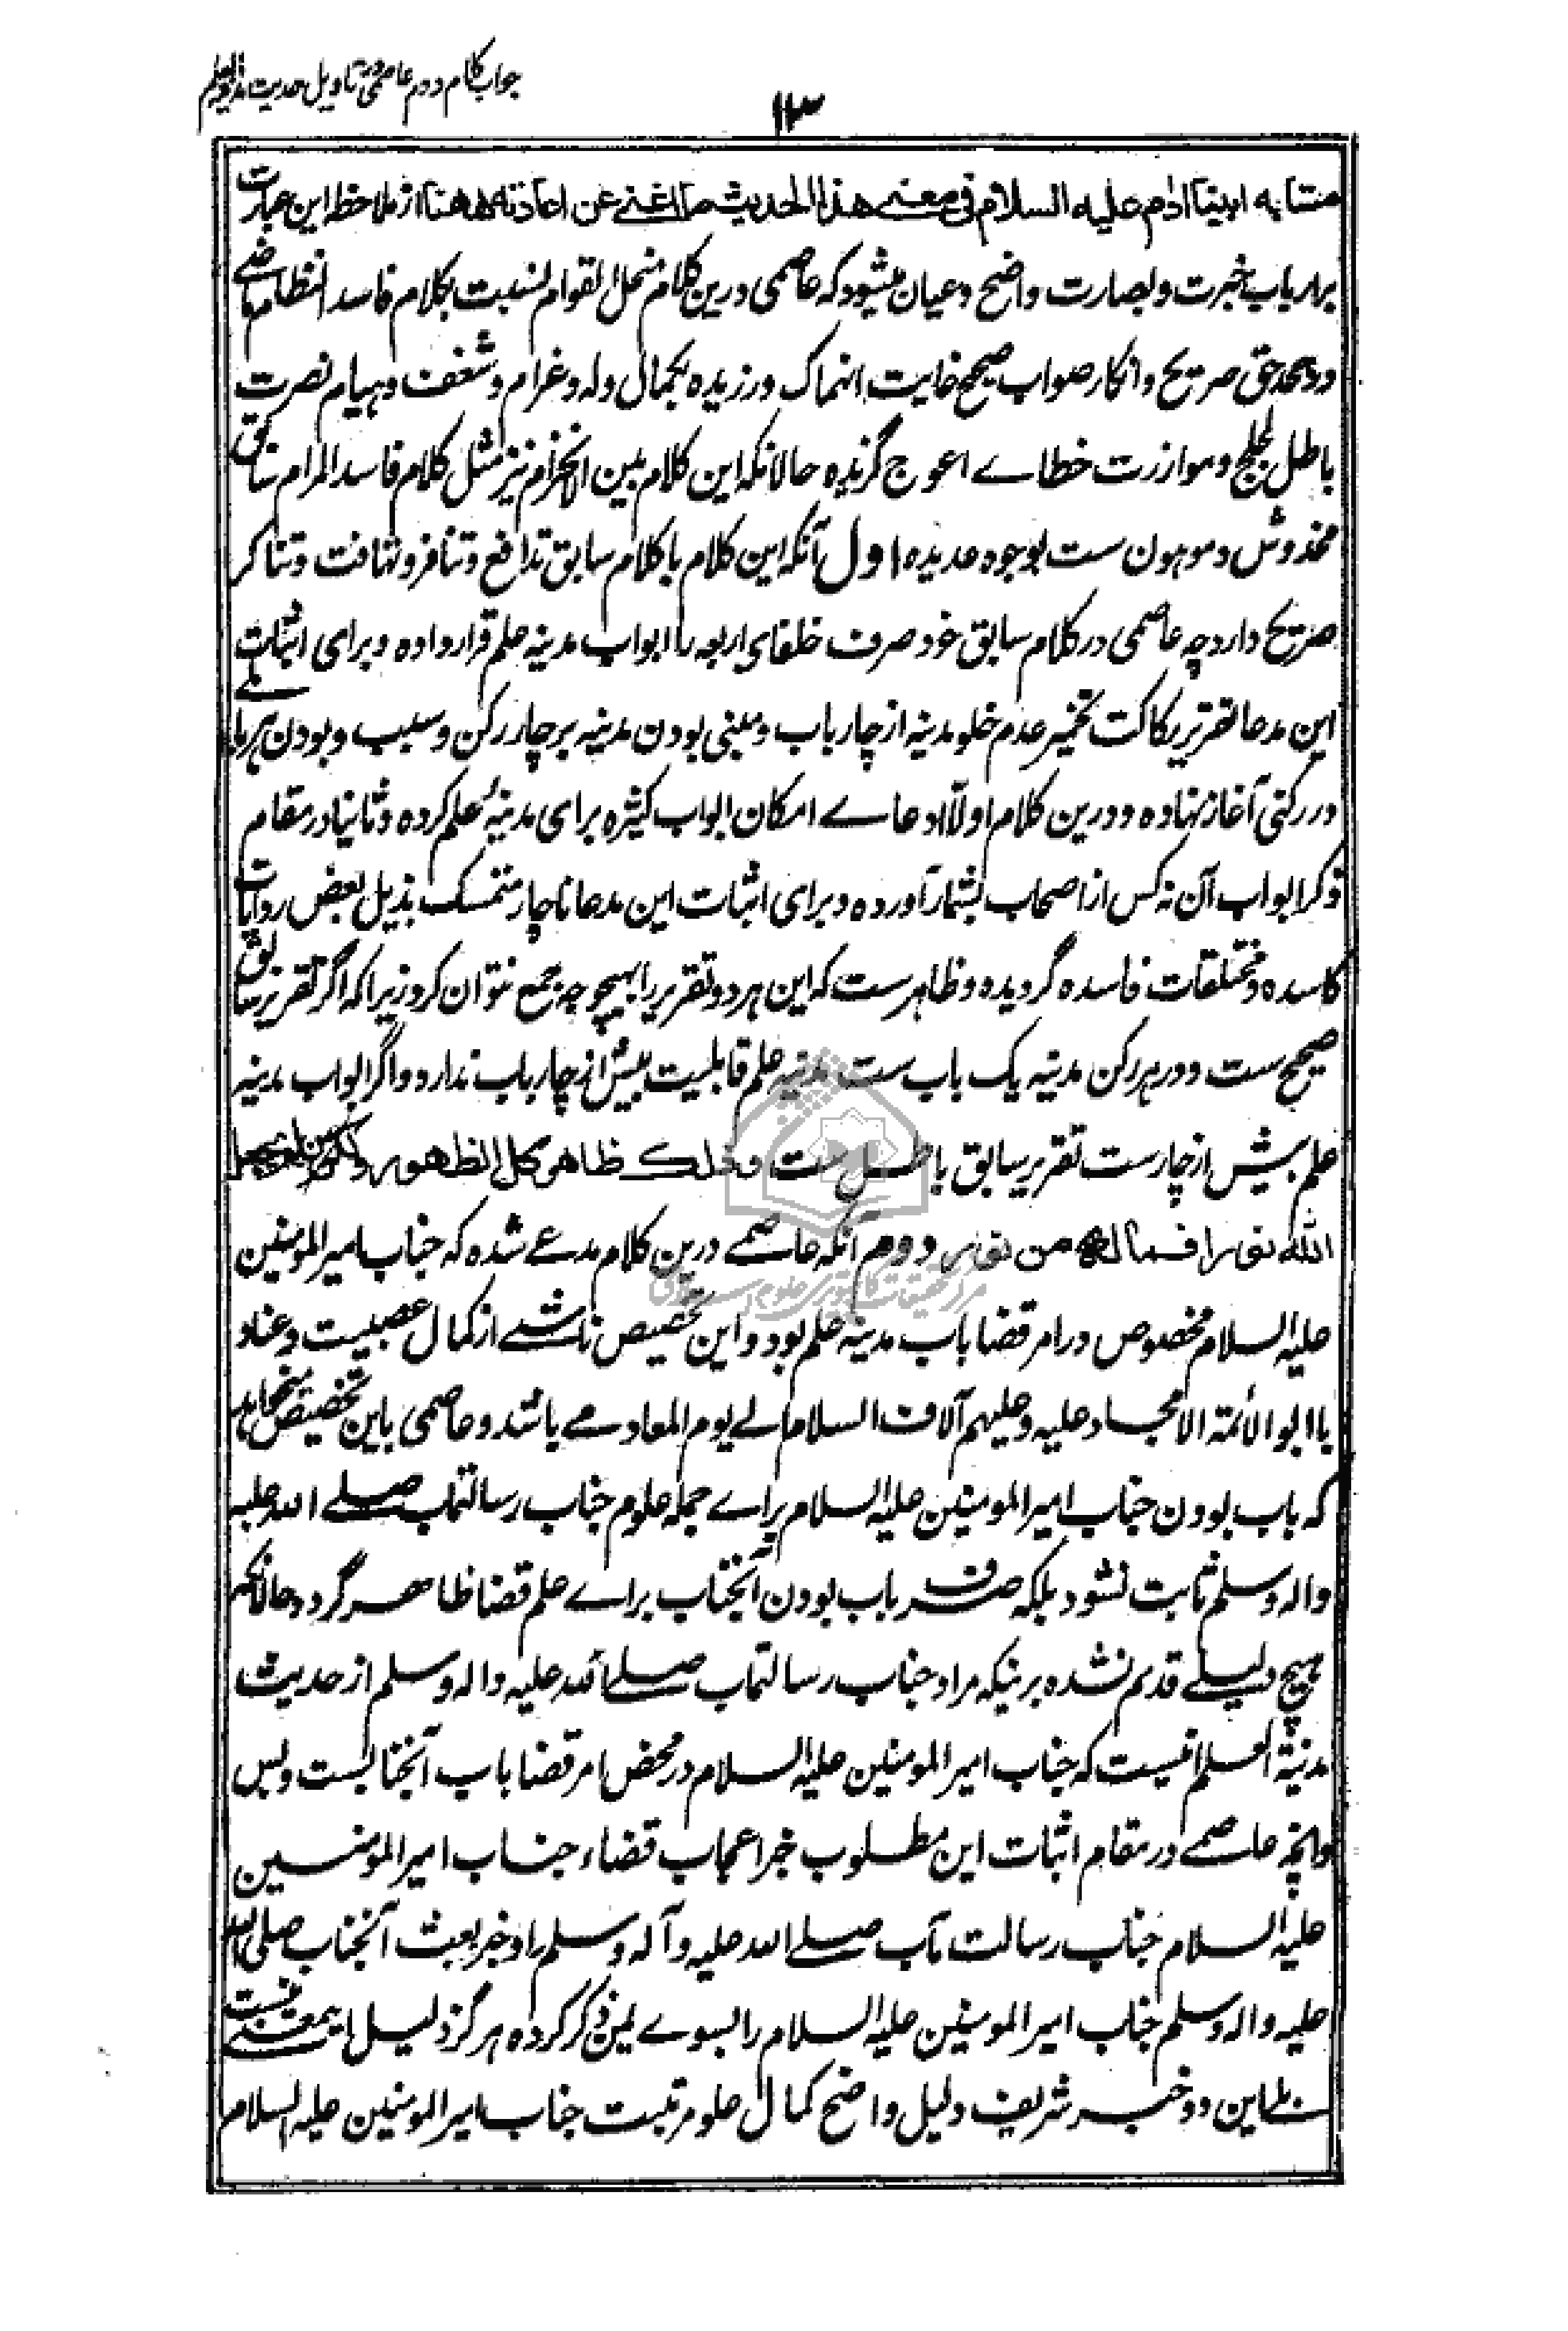 جواب کلام دوم عاصمی در تاویل حدیث مدینة العلم
۱۱۳
مشابه ابینا ادم علیه السلام فی معنی هذا الحدیث ما اغنی عن اعادته ههنا از ملاحظه این عبارت
برارباب خبرت و بصارت واضح و عیان میشود که عاصمی درین کلام منحل القوام نسبت بکلام فاسد انتظام ماضی
در جحد حق صریح و انکار صواب صحیح غایت انهماک ورزیده بکمال وله و غرام و شغف و هیام نصرت
باطل لجلج و موازرت خطاے اعوج گزیده حالانکه این کلام بین الانخرام نیز مثل کلام فاسد المرام سابق
مخدوش و موهون ست بوجوه عدیده اول آنکه این کلام با کلام سابق تدافع و تنافر و تهافت و تناکر
صریح دارد چه عاصمی در کلام سابق خود صرف خلفای اربعه را ابواب مدینه علم قرار داده و برای اثبات
این مدعا تقریر رکاکت تخمیر عدم خلو مدینه از چار باب و مبنی بودن مدینه بر چار رکن و سبب و بودن هر بابے
در رکنی آغاز نهاده و درین کلام اولاً ادعاے امکان ابواب کثیره برای مدینهٔ علم کرده و ثانیا در مقام
ذکر ابواب آن نه کس از اصحاب بشمار آورده و برای اثبات این مدعا ناچار متمسک بذیل بعض روایات
کاسده و مختلقات فاسده گردیده و ظاهرست که این هر دو تقریر را بهیچوجه جمع نتوان کرد زیرا که اگر تقریر سابق
صحیح ست و در هر رکن مدینه یک باب ست مدینه علم قابلیت بیش از چار باب ندارد و اگر ابواب مدینه
علم بیش از چارست تقریر سابق باطل ست و ذلک ظاهر کل الظهور و لکن من لم یجعل
الله له نورا فما له من نور دوم آنکه عاصمے درین کلام مدعے شده که جناب امیر المومنین
علیه السلام مخصوص در امر قضا باب مدینه علم بود و این تخصیص ناشے از کمال عصبیت و عناد
با ابو الائمة الامجاد علیه و علیهم آلاف السلام الے یوم المعاد مے باشد و عاصمی باین تخصیص میخواهد
که باب بودن جناب امیر المومنین علیه السلام براے جمله علوم جناب رسالتمآب صلے الله علیه
واله وسلم ثابت نشود بلکه صرف باب بودن آنجناب براے علم قضا ظاهر گردد حالانکه
هیچ دلیلے قائم نشده برنیکه مراد جناب رسالتمآب صلے الله علیه واله وسلم از حدیث
مدینة العلم انیست که جناب امیر المومنین علیه السلام در محض امر قضا باب آنجنابست و بس
وانچه عاصمے در مقام اثبات این مطلوب خبر اعجاب قضاء جناب امیر المومنین
علیه السلام جناب رسالت مآب صلے الله علیه وآله وسلم را و خبر بعث آنجناب صلی الله
علیه واله وسلم جناب امیر المومنین علیه السلام را بسوے یمن ذکر کرده هرگز دلیل اینمعنے نیست
بلے این دو خبر شریف دلیل واضح کمال علو مرتبت جناب امیر المومنین علیه السلام